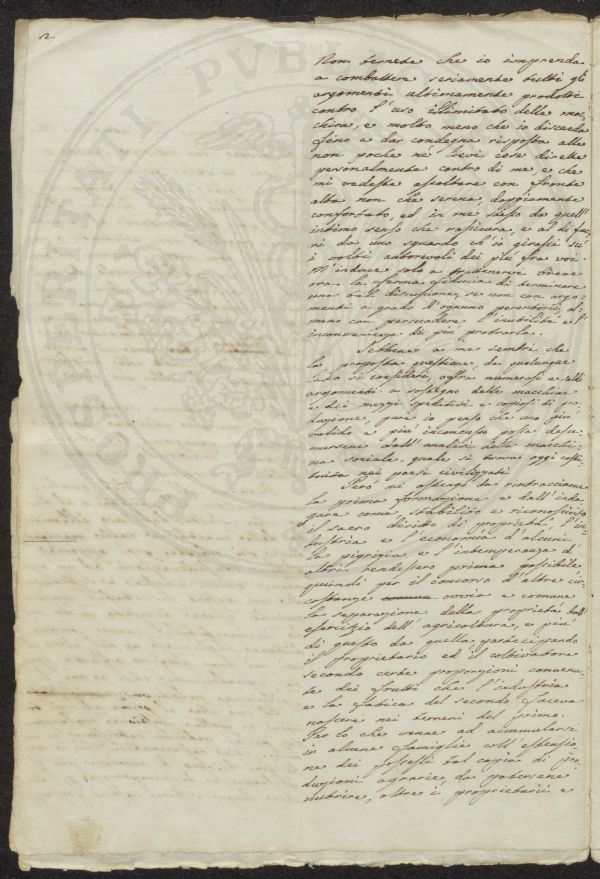 2.
Non temete che io imprenda
a combattere seriamente tutti gli
argomenti ultimamente prodotti
contro l'uso illimitato delle mac
chine, e molto meno che io discenda
fino a dar condegna risposta alle
non poche nè lievi cose dirette
personalmente contro di me, e che
mi vedeste ascoltare con fronte
alta non che serena, doppiamente
confortato, ed in me stesso da quell'
intimo senso che rassicura, e al di fuo
ri da uno sguardo ch'io girassi su
i volti autorevoli dei più fra voi.
M'induce solo a trattenervi breve
ora la ferma fiducia di terminare
una tal discussione, se non con argo
menti a grado d'ognuno perentorii, al
meno con persuadere l'inutilità e l'
inconvenienza di più protrarla.
Sebbene a me sembri che
la proposta questione da qualunque
lato si consideri, offra numerosi e saldi
argomenti a sostegno delle macchine
e dei mezzi speditivi e copiosi di pro
duzione, pure io penso che uno più
valido e più inconcusso possa desu
mersene dall'analisi della macchi
na sociale, quale si trova oggi costi
tuita nei paesi civilizzati.
Però mi astengo da rintracciarne
la prima formazione e dall'inda
gare come, stabilito e riconosciuto
il sacro diritto di proprietà, l'in
dustria e l'economia d'alcuni
la pigrizia e l'intemperanza d'
altri rendessero prima possibile
quindi per il concorso d'altre cir
costanze ovvia e comune
la separazione della proprietà dall'
esercizio dell'agricoltura, e più
di questo da quella partecipando
il proprietario ed il coltivatore
secondo certe proporzioni convenu
te dei frutti che l'industria
e la fatica del secondo faceva
nascere nei terreni del primo.
Per lo che venne ad accumularsi
in alcune famiglie coll'estensio
ne dei possessi tal copia di pro
duzioni agrarie, da potersene
nutrire, oltre i proprietarii e
PROSPERITATI PVBL